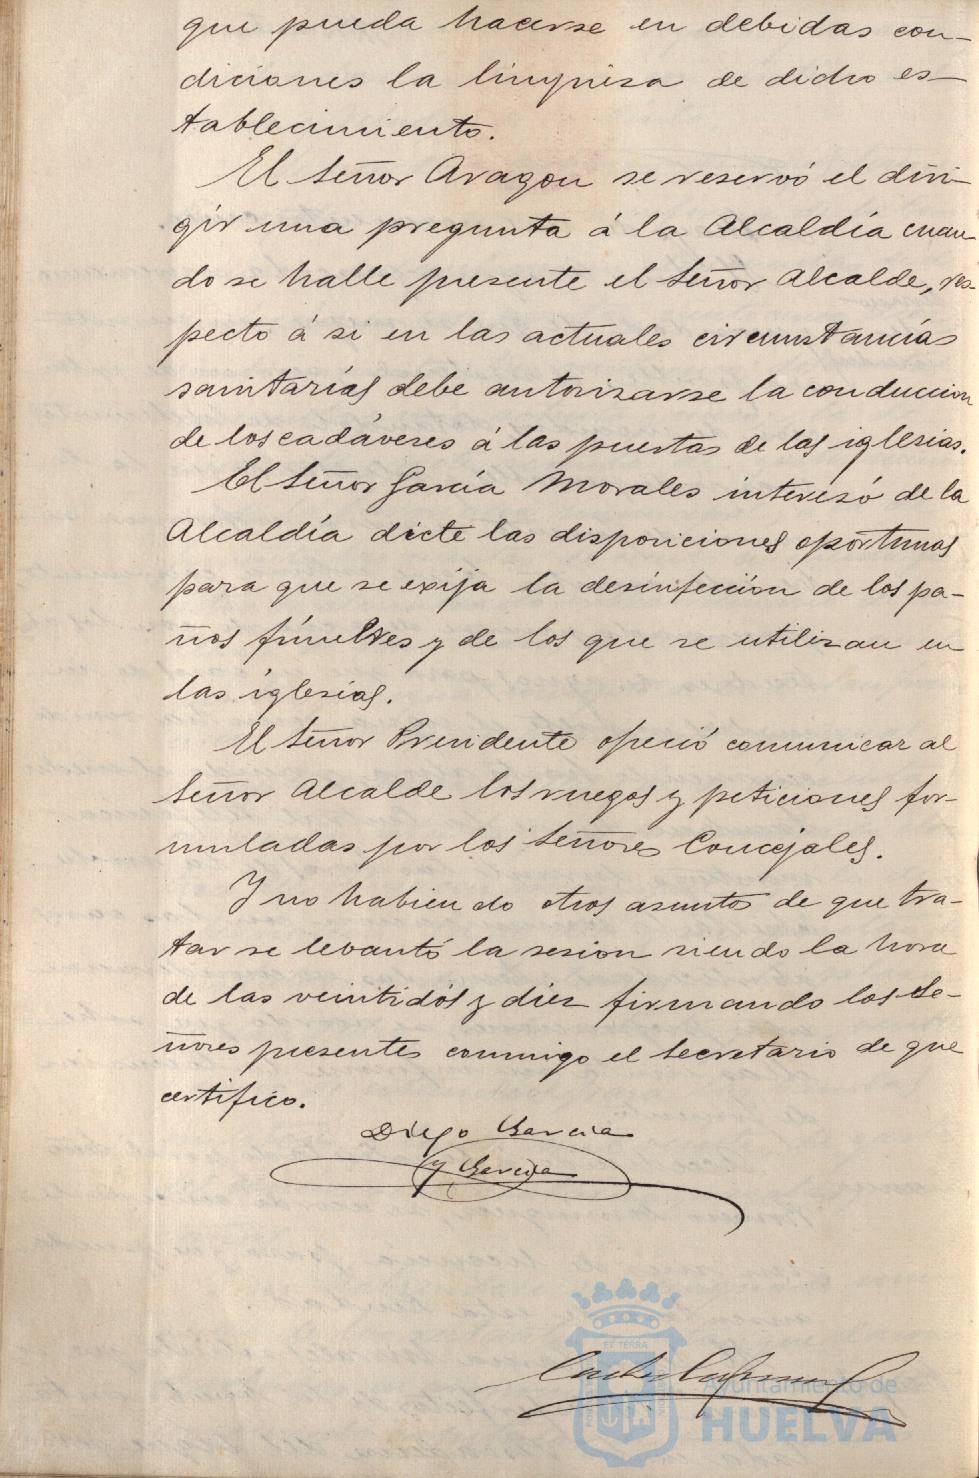 que pueda hacerse en debidas con-
diciones la limpieza de dicho es-
tablecimiento.
El Señor Aragon se reservó el diri-
gir una pregunta á la Alcaldía cuan-
do se halle presente el Señor Alcalde, res-
pecto á si en las actuales circunstancias
sanitarias debe autorizarse la conduccion
de los cadáveres á las puertas de las iglesias.
El Señor García Morales interesó de la
Alcaldía dicte las disposiciones oportunas
para que se exija la desinfección de los pa-
ños fúnebres y de los que se utilizan en
las iglesias.
El Señor Presidente ofreció comunicar al
Señor Alcalde los ruegos y peticiones for-
muladas por los Señores Concejales.
Y no habiendo otros asuntos de que tra-
tar se levantó la sesion siendo la hora
de las veintidós y diez firmando los Se-
ñores presentes conmigo el Secretario de que
certifico.
Diego Garcia
y Garcia
ET TERRA
Ayuntamiento de
HUELVA